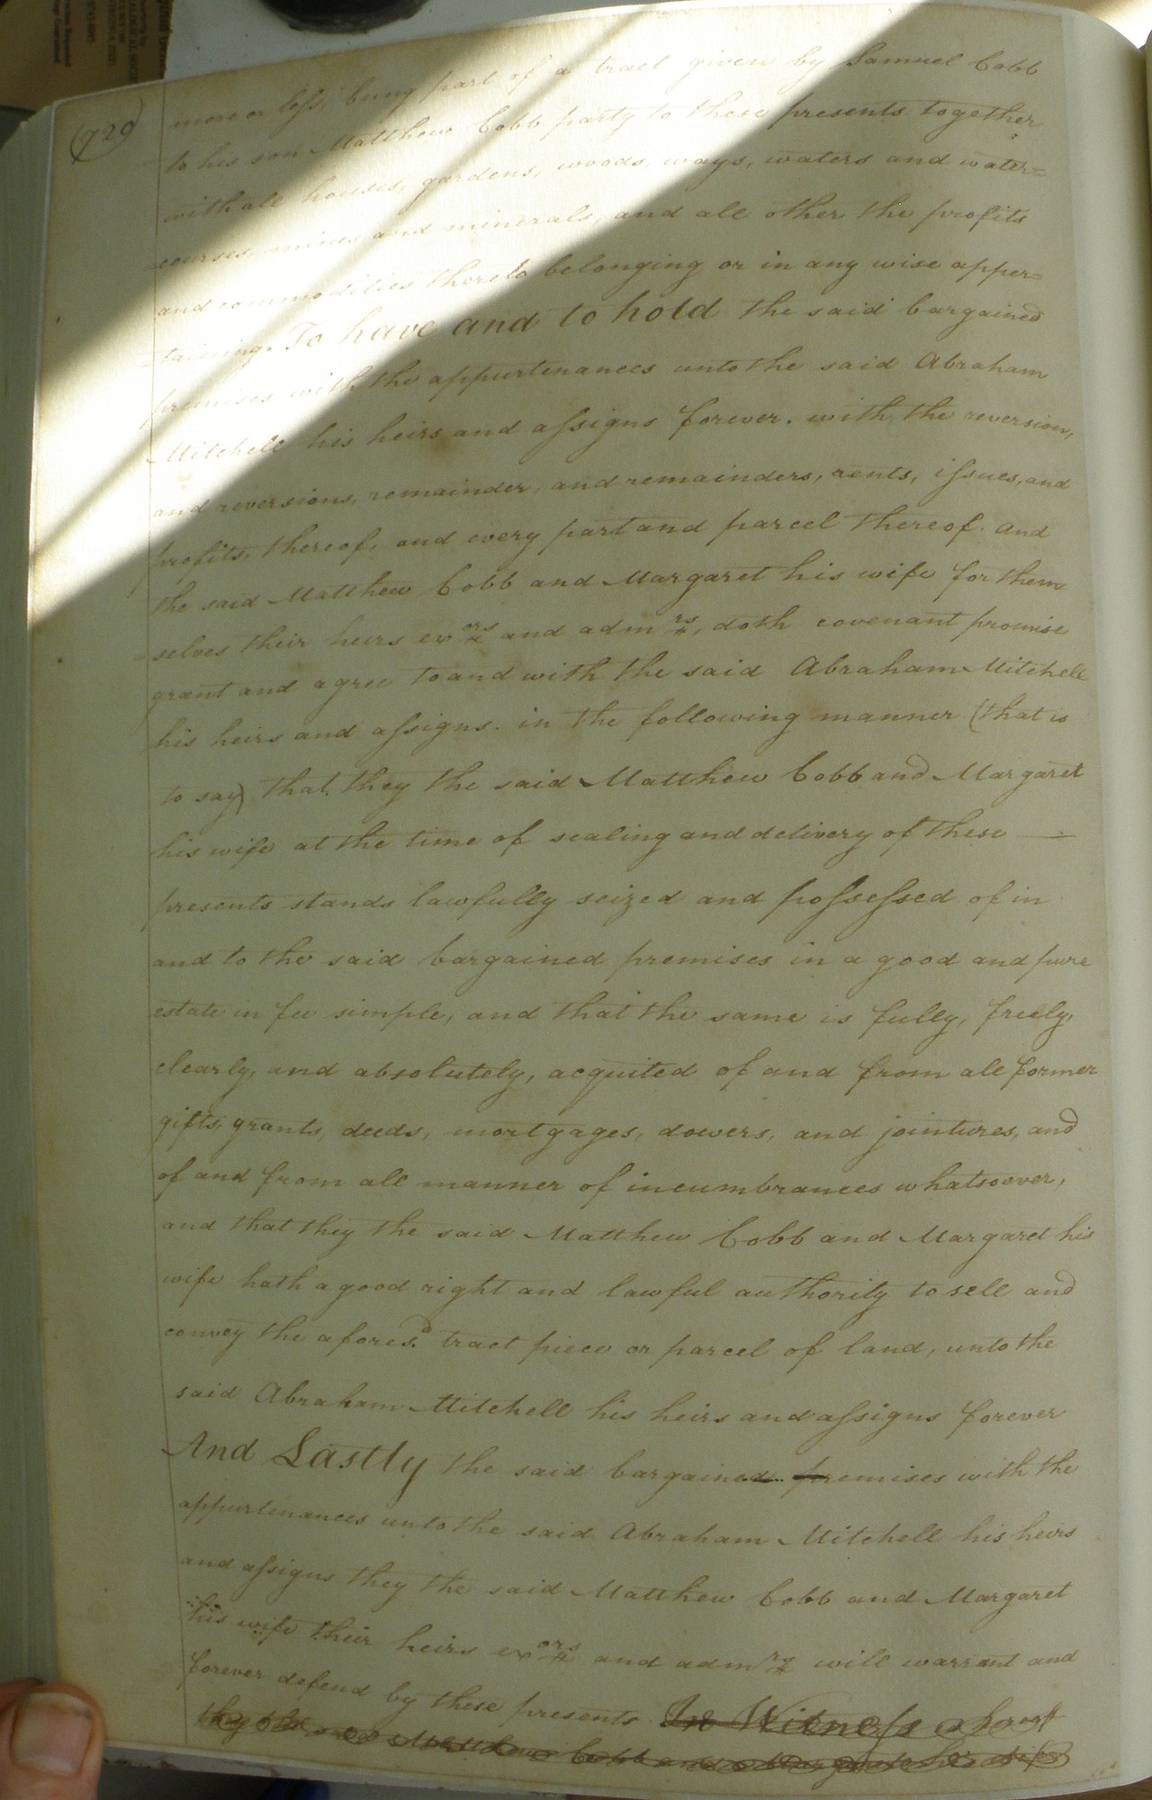 (729)
more or less, being part of a tract given by Samuel Cobb
to his son Matthew Cobb party to these presents together
with all houses, gardens, woods, ways, waters and water=
=courses, mines and minerals, and all other the profits
and commodities thereto belonging or in any wise apper=
=taining. To have and to hold the said bargained
premises with the appurtenances unto the said Abraham
Mitchell his heirs and assigns forever. with the reversion,
and reversions, remainder, and remainders, rents, issues, and
profits, thereof, and every part and parcel thereof. and
the said Matthew Cobb and Margaret his wife for them
=selves their heirs exors and admrs, doth covenant promise
grant and agree to and with the said Abraham Mitchell
his heirs and assigns. in the following manner (that is
to say) that, they the said Matthew Cobb and Margaret
his wife at the time of sealing and delivery of these —
presents stands lawfully seized and possessed of in
and to the said bargained premises in a good and pure
estate in fee simple, and that the same is fully, freely,
clearly, and absolutely, acquited of and from all former
gifts, grants, deeds, mortgages, dowers, and jointures, and
of and from all manner of incumbrances whatsoever,
and that they the said Matthew Cobb and Margaret his
wife hath a good right and lawful authority to sell and
convey the aforesd. tract piece or parcel of land, unto the
said Abraham Mitchell his heirs and assigns forever
And Lastly the said bargained premises with the
appurtenances unto the said Abraham Mitchell his heirs
and assigns they the said Matthew Cobb and Margaret
his wife their heirs exors and admrs will warrant and
forever defend by these presents In Witness
they the said Matthew Cobb and Margaret his wife